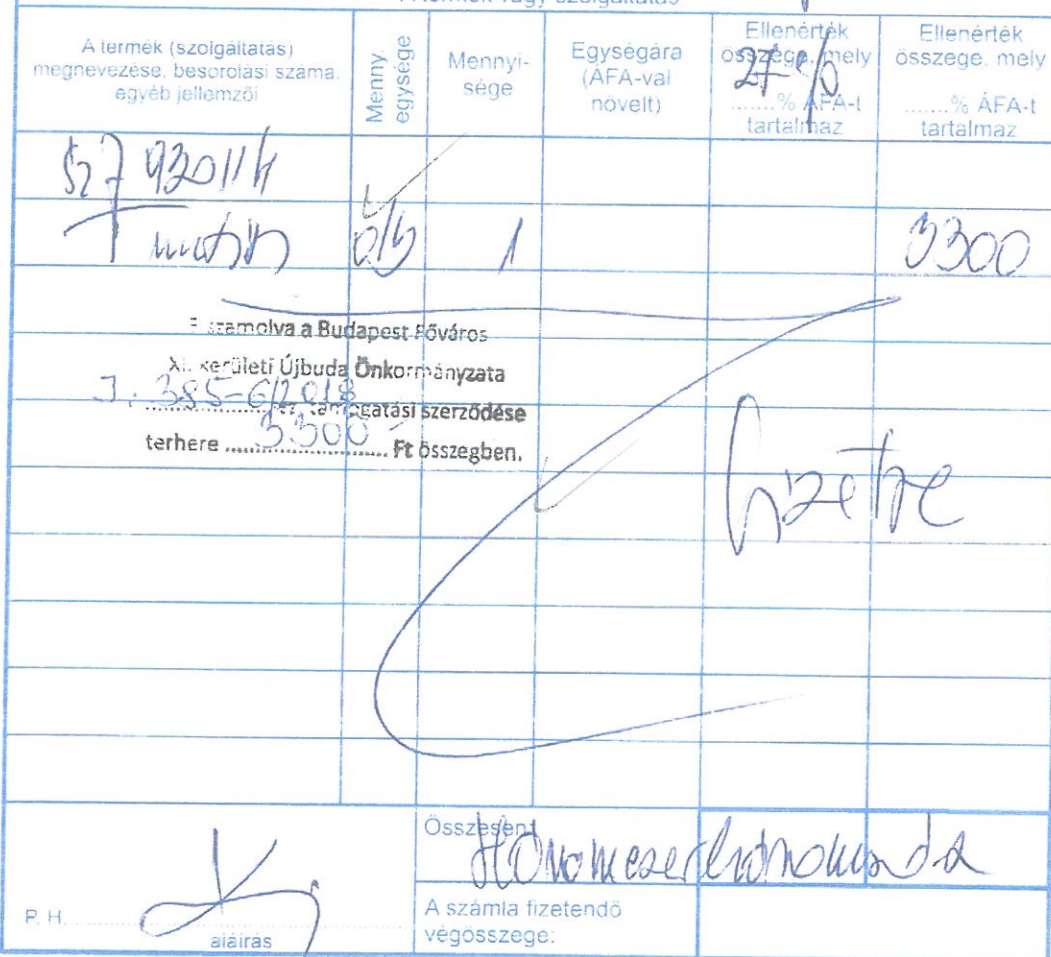 A termék vagy szolgáltatás
A termék (szolgáltatás) megnevezése, besorolási száma, egyéb jellemzői
Menny. egysége
Mennyi-sége
Egységára (ÁFA-val növelt)
Ellenérték összege, mely
27%
.......% ÁFA-t tartalmaz
Ellenérték összege, mely
.......% ÁFA-t tartalmaz
SZJ 93011/4
1
3300
Elszámolva a Budapest Főváros
XI. kerületi Újbuda Önkormányzata
J. 385-6/2018 támogatási szerződése
terhére 3300 Ft összegben.
fizetve
Összesen:
P. H.
aláírás
A számla fizetendő végösszege: